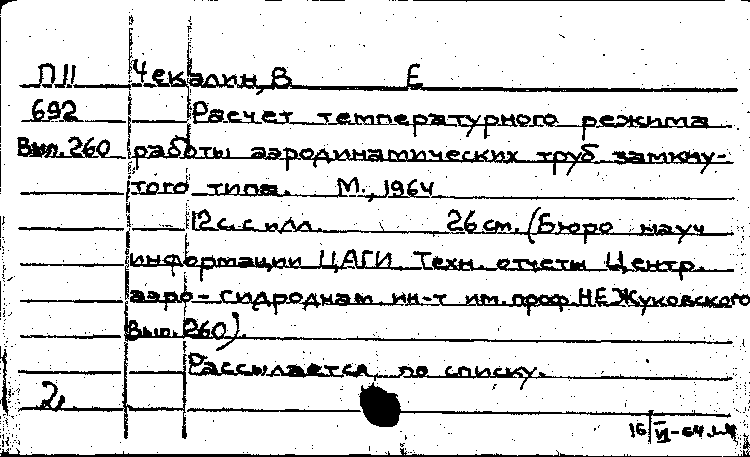 П11 Чекалин, В Е
692 Расчет температурного режима
Вып. 260 работы аэродинамических труб замкну-
того типа. М., 1964
12 с. с илл. 26 см. (Бюро науч
информации ЦАГИ. Техн. отчеты Центр.
аэро-гидродинам. ин-т им. проф. Н.Е. Жуковского
Вып. 260).
Рассылается по списку.
2,
16/VI-64